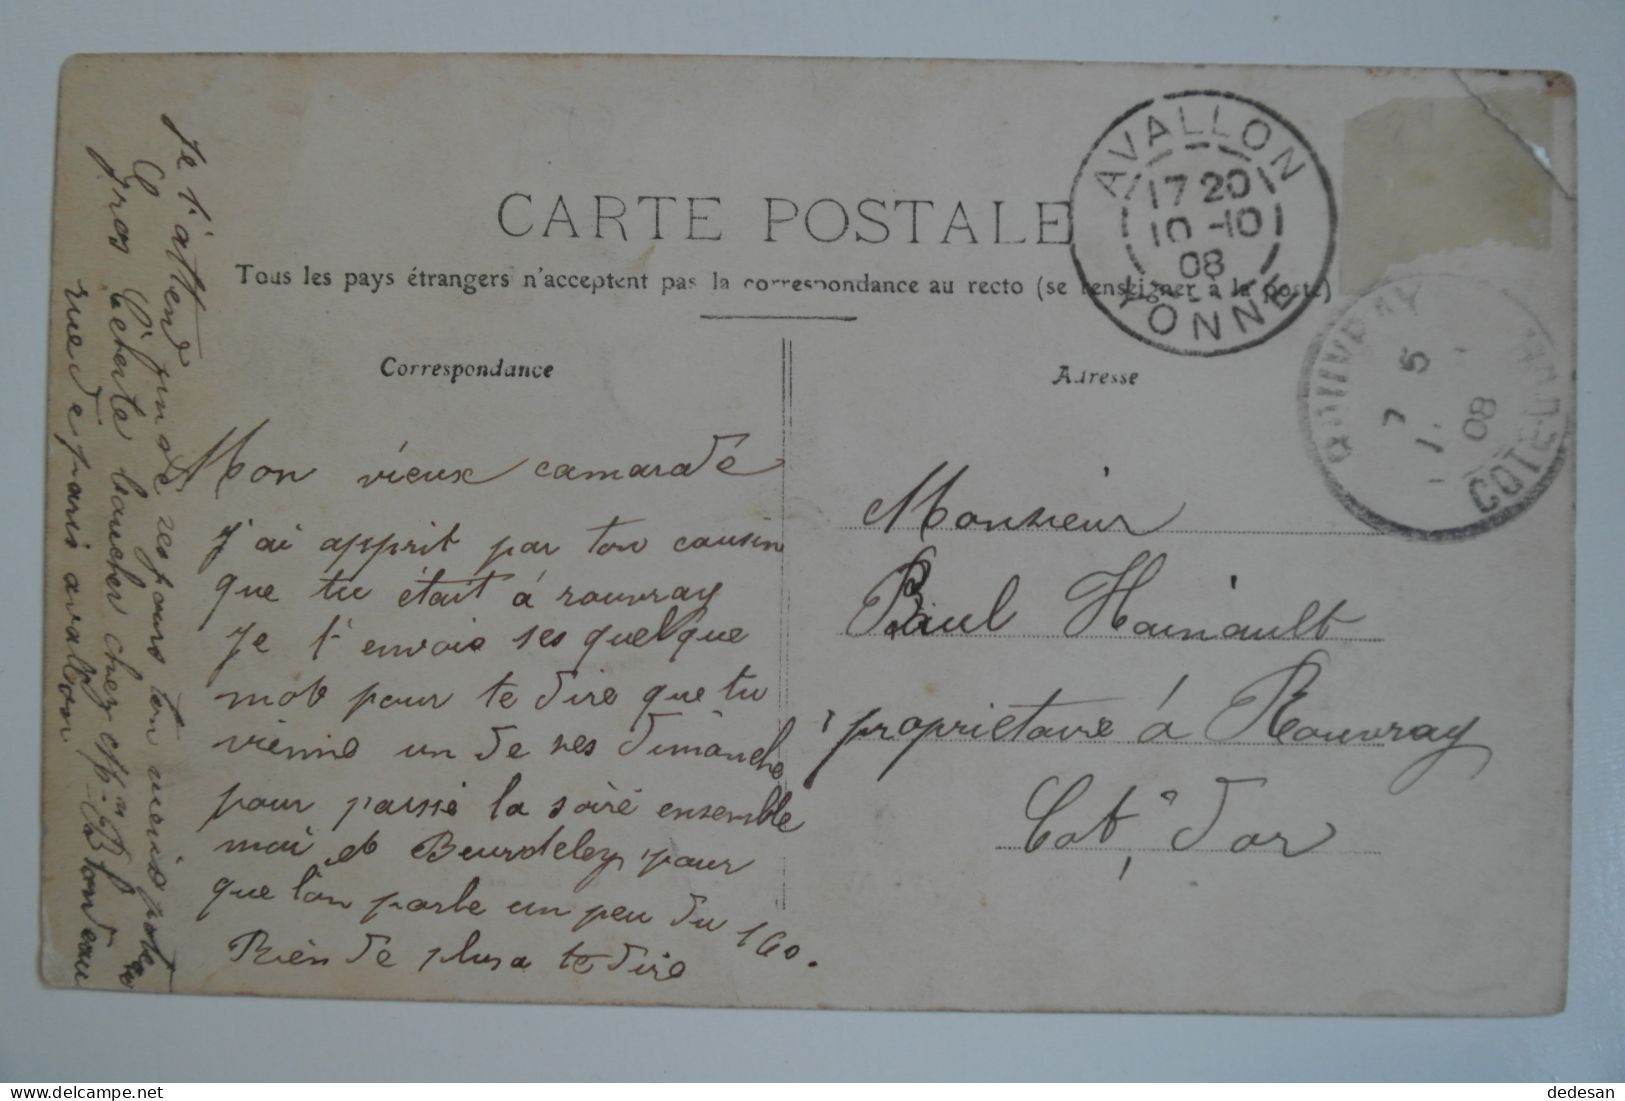 CARTE POSTALE
Tous les pays étrangers n'acceptent pas la correspondance au recto (se renseigner à la poste)
Correspondance
Adresse
AVALLON
17 20
10 -10
08
YONNE
ROUVRAY
7 5
08
CÔTE-D'OR
Mon vieux camarade
J'ai apprit par ton cousin
que tu était à rouvray
Je t'envoie ses quelque
mot pour te dire que tu
vienne un de ses dimanche
pour passé la soiré ensemble
moi et Beurdeley pour
que l'on parle un peu du 160.
Rien de plus a te dire
Je t'attend un de ses jours ton vieux pote
gros boucher chez Blondeau
rue de paris avallon
Monsieur
Paul Hainault
propriétaire à Rouvray
Cot, d'or
dedesan